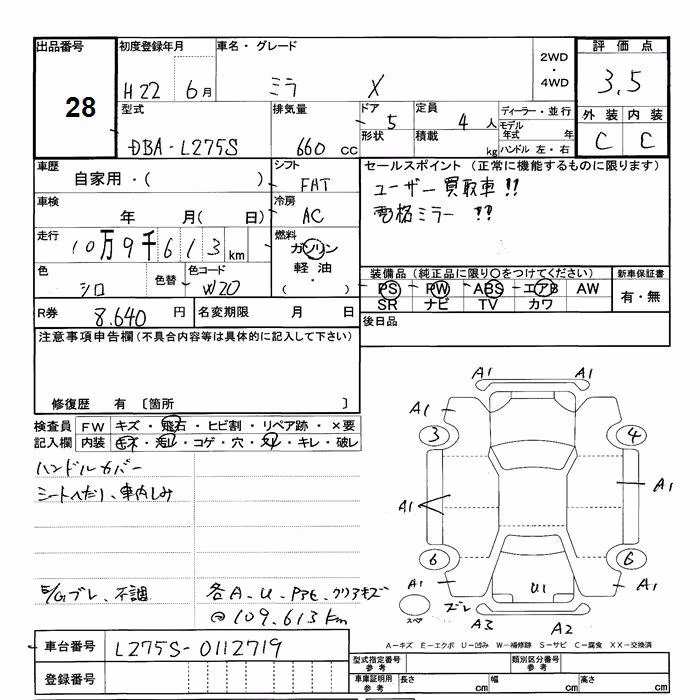 出品番号 28
初度登録年月 H22 6月
車名・グレード ミラ X
2WD・4WD
評価点 3.5
外装 C 内装 C
型式 DBA-L275S
排気量 660 cc
ドア 5 形状
定員 4 人 積載 kg
ディーラー・並行
モデル年式 年
ハンドル 左・右
車歴 自家用・( )
シフト FAT
セールスポイント(正常に機能するものに限ります)
ユーザー買取車!!
電格ミラー!!
車検 年 月( 日)
冷房 AC
走行 10万9千613km
燃料 ガソリン 軽油・( )
色 シロ 色替 色コード W20
装備品(純正品に限り○をつけてください)
PS PW ABS エアB AW
SR ナビ TV カワ
新車保証書 有・無
R券 8.640 円 名変期限 月 日
後日品
注意事項申告欄(不具合内容等は具体的に記入して下さい)
修復歴 有 〔箇所 〕
検査員記入欄
FW キズ・飛石・ヒビ割・リペア跡・×要
内装 キズ・汚レ・コゲ・穴・スレ・キレ・破レ
ハンドルカバー
シートへたり、車内しみ
E/Gブレ、不調
各A、U、クリアキズ
@109.613km
A1 A1
A1
3 4
A1 A1
6 6
A1 U1 A1
スペア ズレ
A3 A2
A-キズ E-エクボ U-凹み W-補修跡 S-サビ C-腐食 XX-交換済
車台番号 L275S-0112719
登録番号
型式指定番号 参考 類別区分番号 参考
車庫証明用 参考 長さ cm 幅 cm 高さ cm